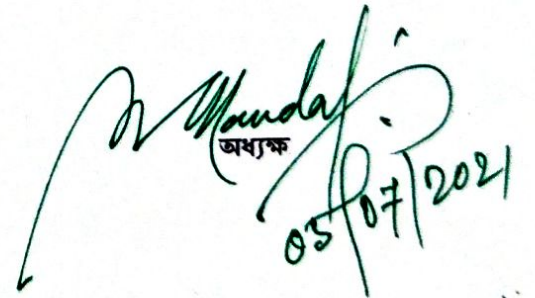 Mandal
অধ্যক্ষ
03/07/2021